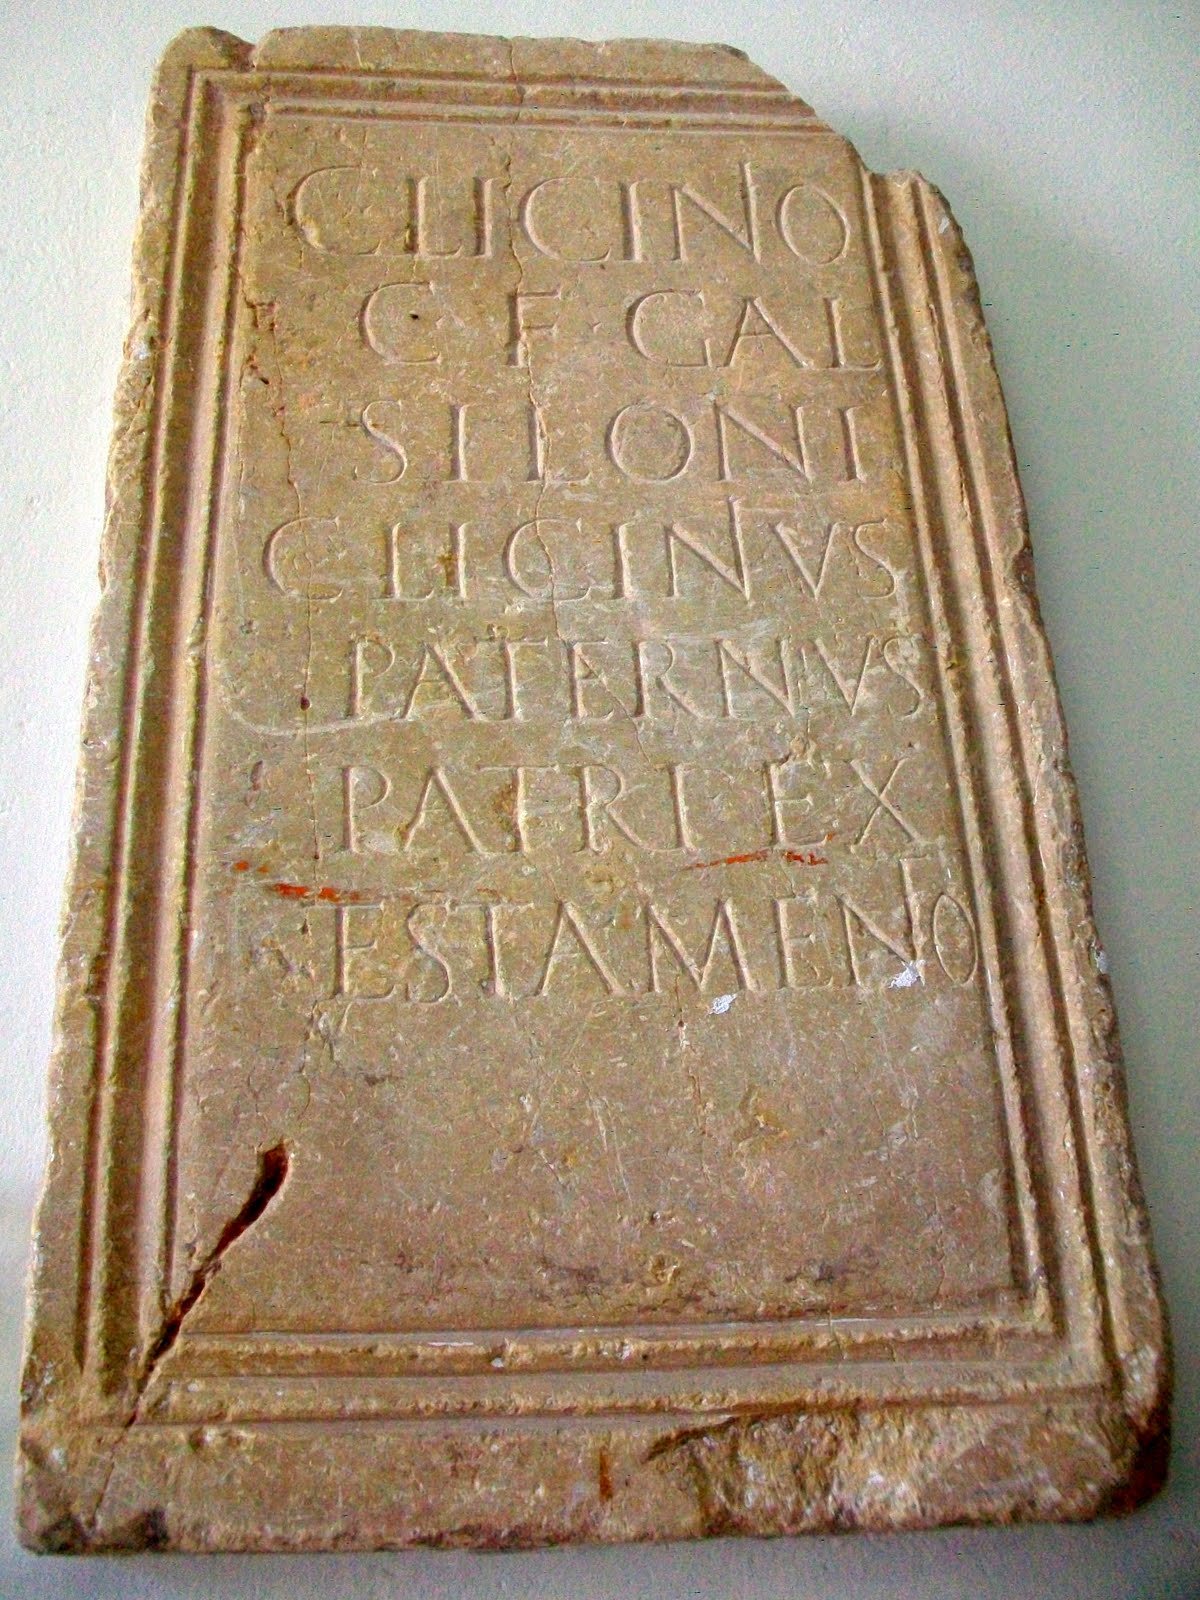 C LICINO
C · F · GAL
SILONI
C LICINVS
PATERNVS
PATRI EX
TESTAMENO